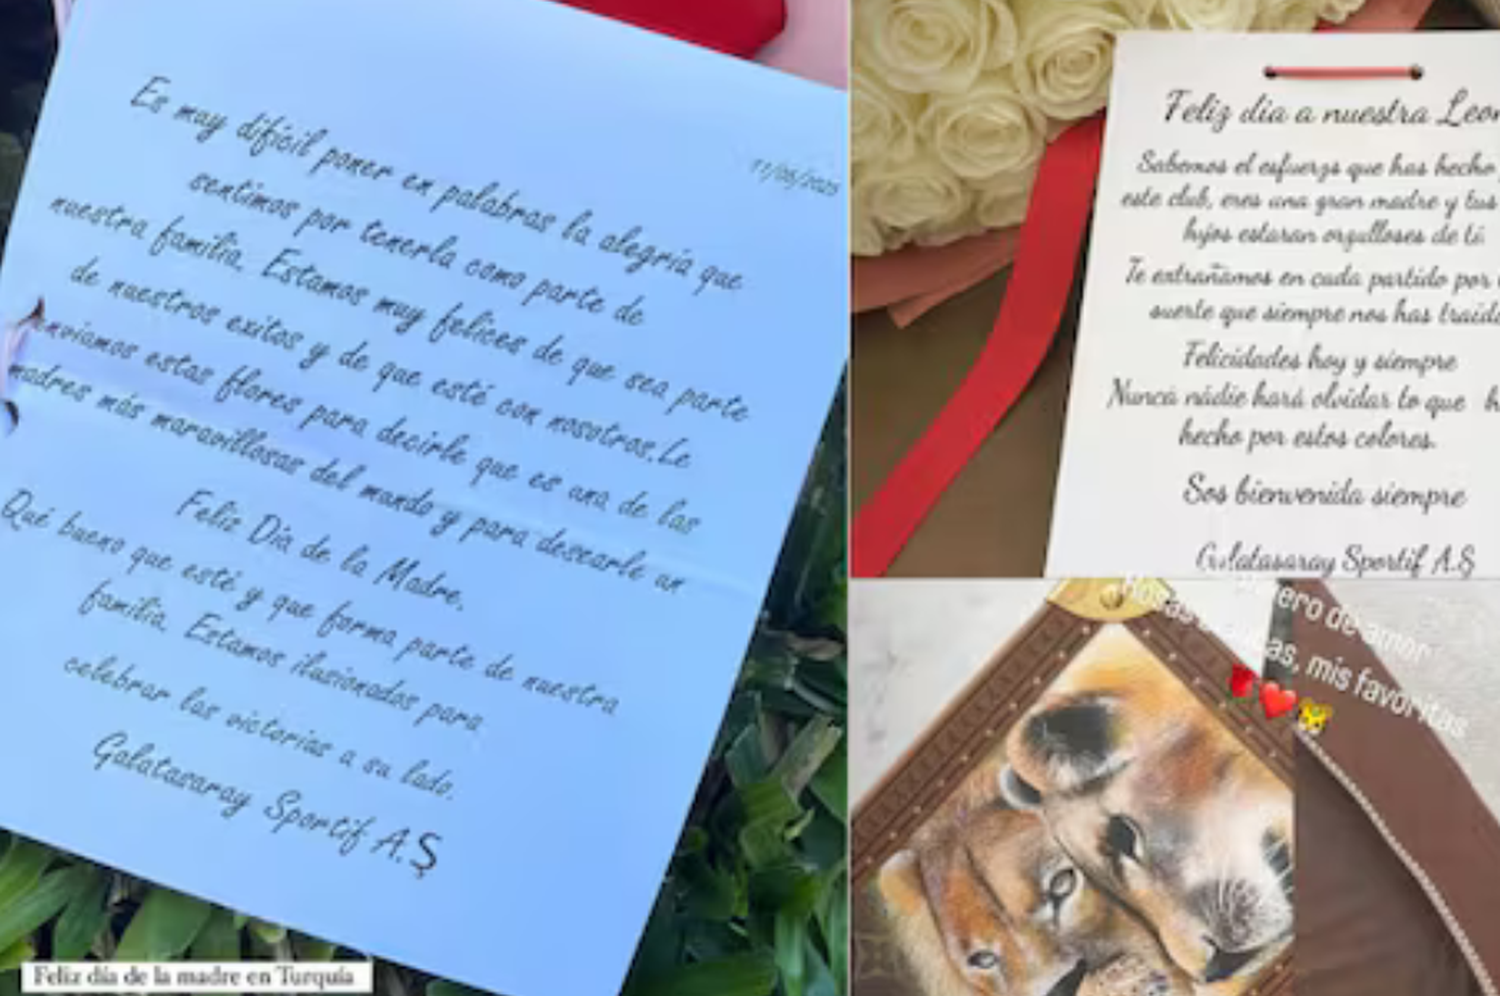 11/05/2025
Es muy difícil poner en palabras la alegría que
sentimos por tenerla como parte de
nuestra familia. Estamos muy felices de que sea parte
de nuestros exitos y de que esté con nosotros.Le
enviamos estas flores para decirle que es una de las
madres más maravillosas del mundo y para desearle un
Feliz Día de la Madre.
Qué bueno que esté y que forma parte de nuestra
familia. Estamos ilusionados para
celebrar las victorias a su lado.
Galatasaray Sportif A.Ş
Feliz día de la madre en Turquía
Feliz día a nuestra Leon
Sabemos el esfuerzo que has hecho
este club, eres una gran madre y tus
hijos estaran orgulloses de tí.
Te extrañamos en cada partido por
suerte que siempre nos has traído
Felicidades hoy y siempre
Nunca nádie hará olvidar lo que h
hecho por estos colores.
Sos bienvenida siempre
Galatasaray Sportif A.Ş
ero de amor
Rosas as, mis favoritas